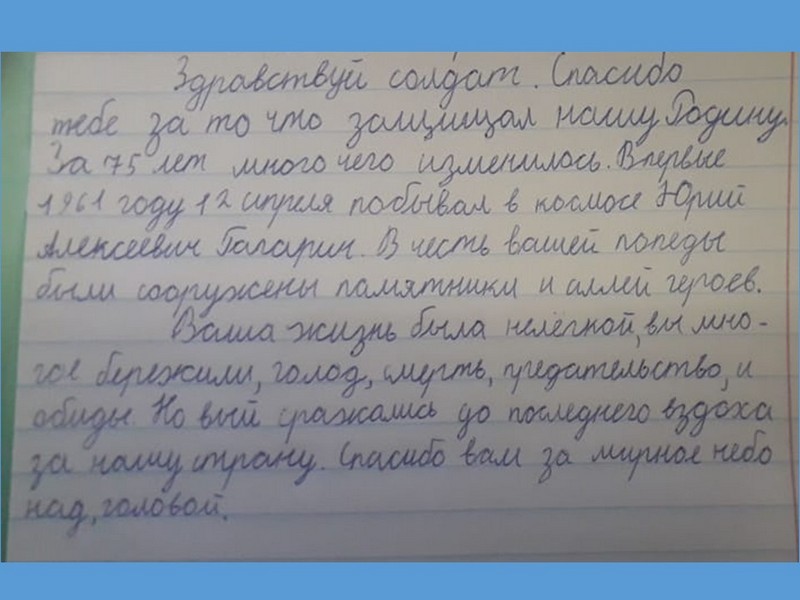 Здравствуй солдат. Спасибо
тебе за то что защищал нашу Родину.
За 75 лет много чего изменилось. Впервые
1961 году 12 апреля побывал в космосе Юрий
Алексеевич Гагарин. В честь вашей попеды
были сооружены памятники и аллей героев.
Ваша жизнь была нелёгкой, вы мно-
гое бережили, голод, смерть, предательство, и
обиды. Но вый сражались до последнего вздоха
за нашу страну. Спасибо вам за мирное небо
над, головой.